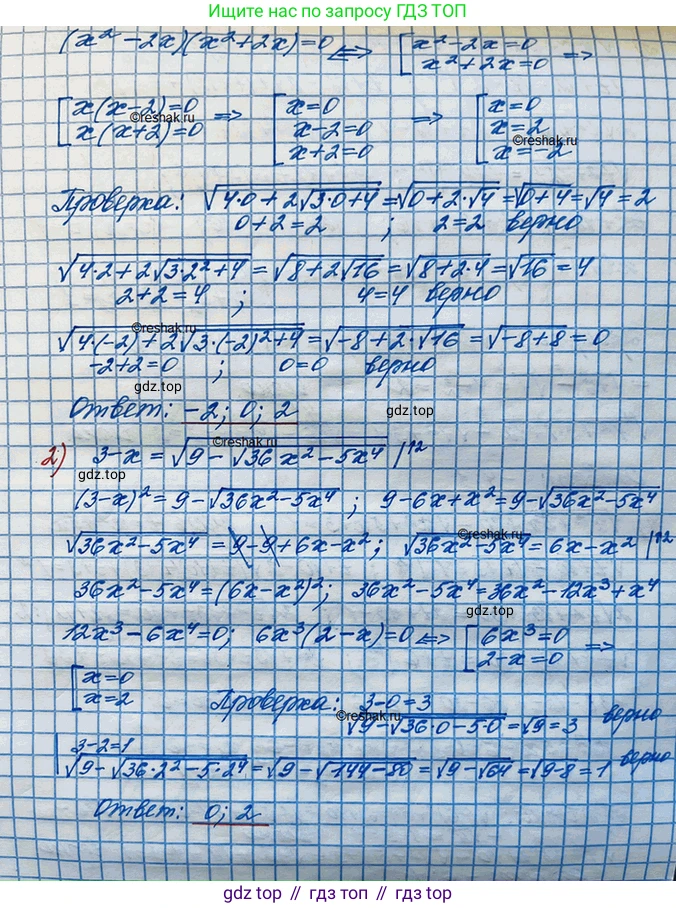 Ищите нас по запросу ГДЗ ТОП
(x² - 2x)(x² + 2x) = 0 <=> [x² - 2x = 0
x² + 2x = 0 =>
[x(x-2) = 0
x(x+2) = 0 => [x = 0
x - 2 = 0
x + 2 = 0 => [x = 0
x = 2
x = -2
©reshak.ru
Проверка: √(4·0 + 2√(3·0+4)) = √(0 + 2·√4) = √(0+4) = √4 = 2
0 + 2 = 2 ; 2 = 2 верно
√(4·2 + 2√(3·2² + 4)) = √(8 + 2√16) = √(8 + 2·4) = √16 = 4
2 + 2 = 4 ; 4 = 4 верно
©reshak.ru
√(4·(-2) + 2√(3·(-2)² + 4)) = √(-8 + 2·√16) = √(-8 + 8) = 0
-2 + 2 = 0 ; 0 = 0 верно
gdz.top
Ответ: -2; 0; 2
gdz.top
©reshak.ru
2) 3 - x = √(9 - √(36x² - 5x⁴)) |↑2
gdz.top
(3-x)² = 9 - √(36x² - 5x⁴) ; 9 - 6x + x² = 9 - √(36x² - 5x⁴)
©reshak.ru
√(36x² - 5x⁴) = 9 - 9 + 6x - x² ; √(36x² - 5x⁴) = 6x - x² |↑2
36x² - 5x⁴ = (6x - x²)² ; 36x² - 5x⁴ = 36x² - 12x³ + x⁴
gdz.top
12x³ - 6x⁴ = 0 ; 6x³(2 - x) = 0 <=> [6x³ = 0
2 - x = 0 =>
[x = 0
x = 2
Проверка: 3 - 0 = 3
√(9 - √(36·0 - 5·0)) = √9 = 3 | верно
©reshak.ru
| 3 - 2 = 1
√(9 - √(36·2² - 5·2⁴)) = √(9 - √(144 - 80)) = √(9 - √64) = √(9 - 8) = 1 верно
Ответ: 0; 2
gdz.top // гдз топ // gdz.top